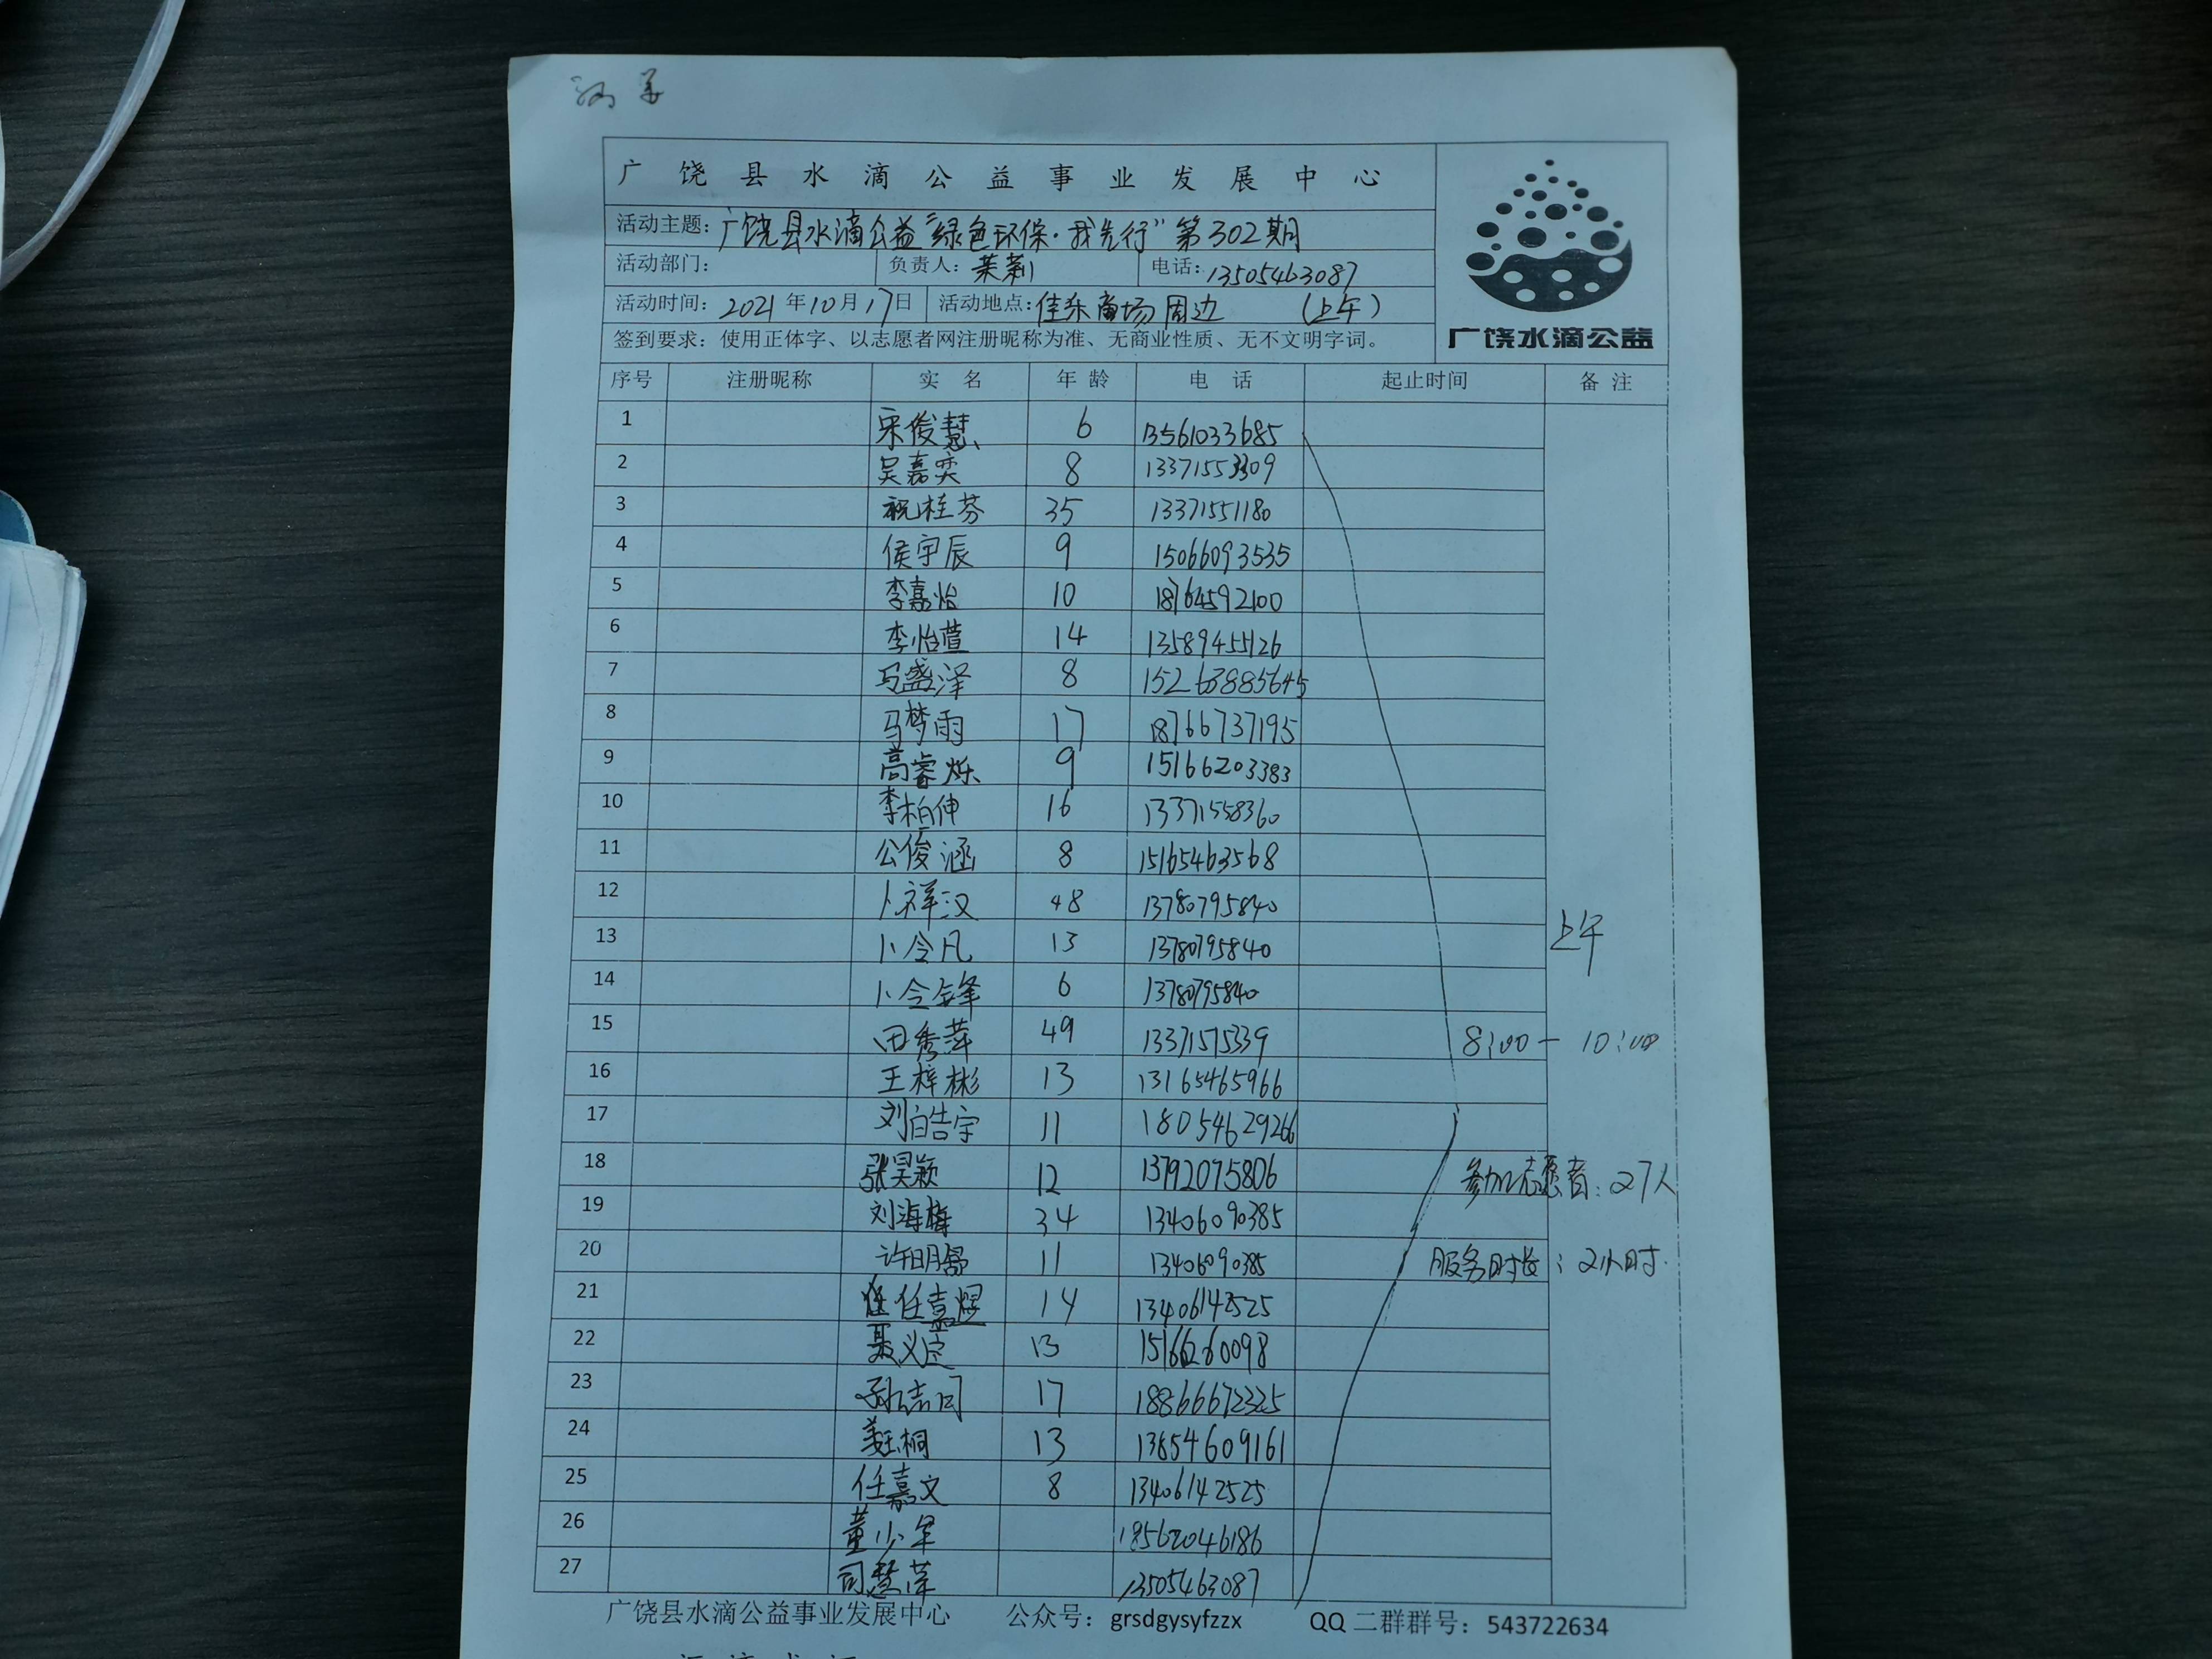 广饶县水滴公益事业发展中心
活动主题：广饶县水滴公益"绿色环保·我先行"第302期
活动部门： 负责人：茉莉 电话：13505463087
活动时间：2021年10月17日 活动地点：佳乐商场周边 (上午)
签到要求：使用正体字、以志愿者网注册昵称为准、无商业性质、无不文明字词。
广饶水滴公益
序号 注册昵称 实 名 年 龄 电 话 起止时间 备 注
1 宋俊慧 6 13561033685
2 吴嘉奕 8 13371553309
3 祝桂芬 35 13371551180
4 侯宇辰 9 15066093535
5 李嘉怡 10 18764592100
6 李怡萱 14 13589455126
7 马盛泽 8 15263885645
8 马梦雨 17 18766737195
9 高睿烁 9 15166203383
10 李柏伸 16 13371558360
11 公俊涵 8 15165463568
12 卜祥汉 48 13780795840
13 卜令凡 13 13780795840
上午
14 卜令锋 6 13780795840
15 田秀萍 49 13371575339 8:00 — 10:00
16 王梓彬 13 13165465966
17 刘皓宇 11 18054629266
18 张昊颖 12 13792075806 参加志愿者：27人
19 刘海梅 34 13406090385
20 许明舒 11 13406090385 服务时长：2小时.
21 任嘉煜 14 13406142525
22 聂义定 13 15166260098
23 孙志同 17 18866672325
24 姜玉桐 13 13854609161
25 任嘉文 8 13406142525
26 董少军 18562046186
27 司慧萍 13505463087
广饶县水滴公益事业发展中心 公众号：grsdgysyfzzx QQ 二群群号：543722634